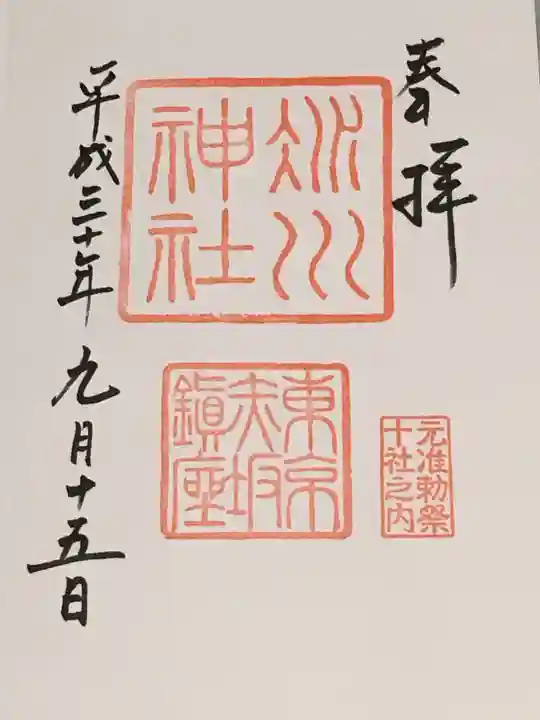 奉拝
氷川
神社
東京
赤坂
鎮座
元准勅祭
十社之内
平成三十年九月十五日